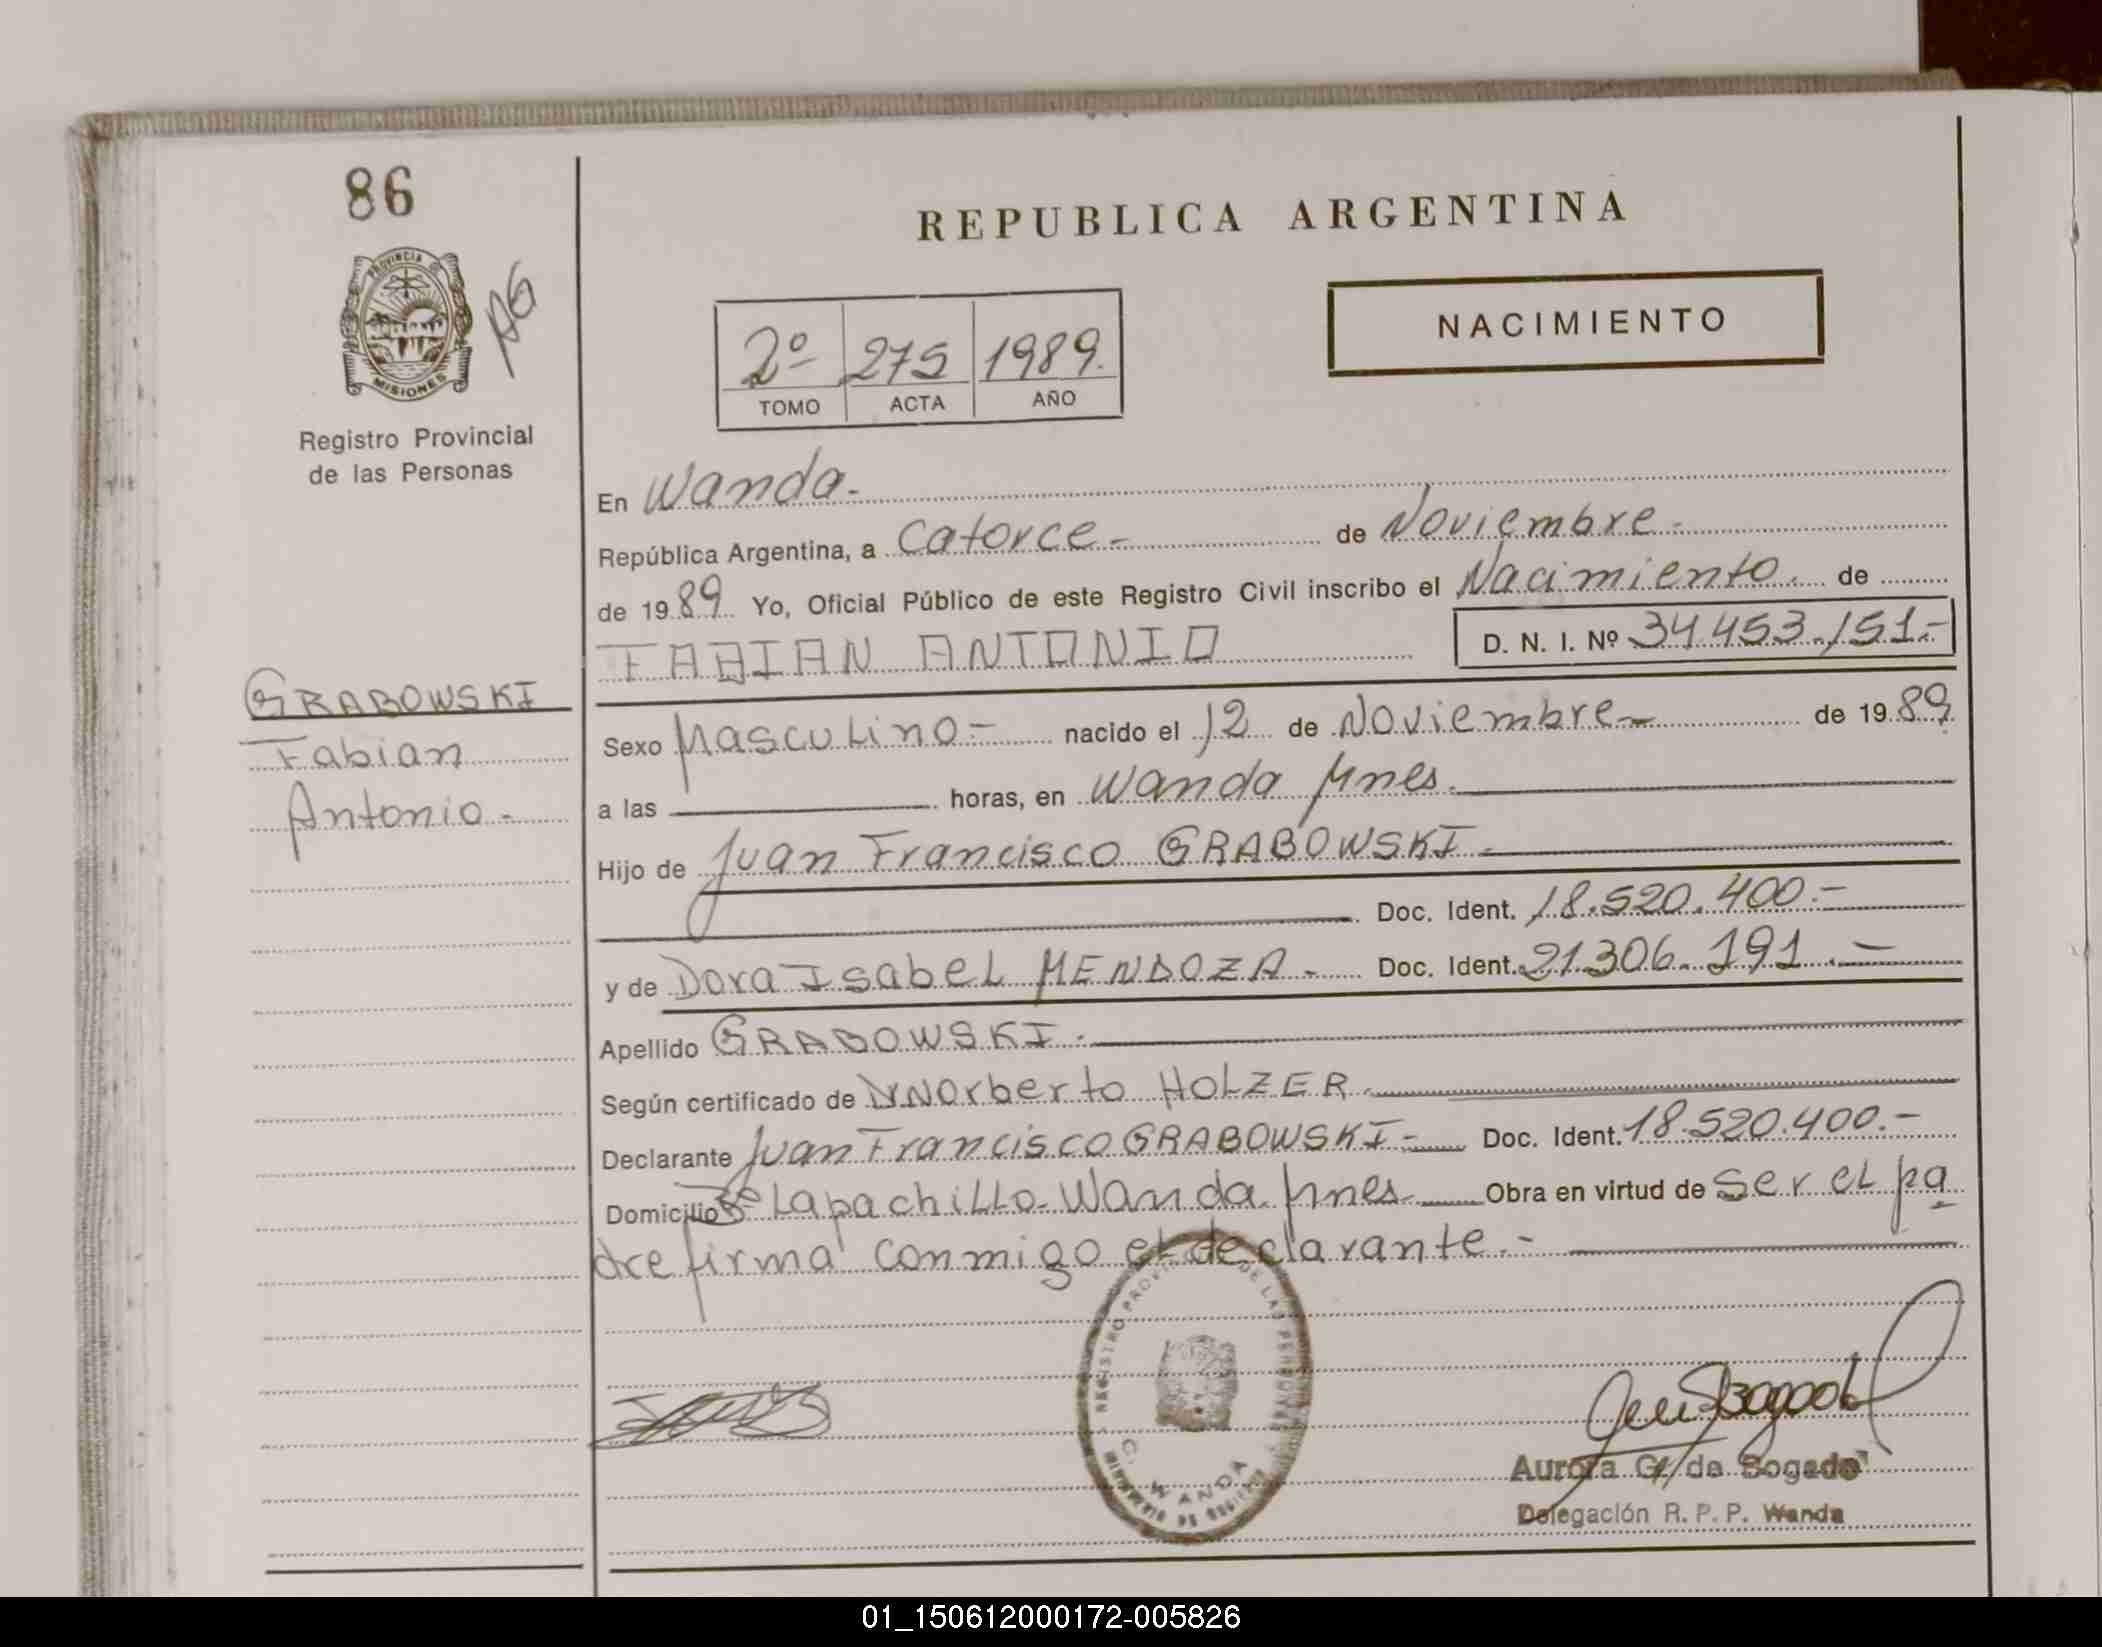 86
PROVINCIA DE
MISIONES
AG
Registro Provincial
de las Personas
REPUBLICA ARGENTINA
NACIMIENTO
2º 275 1989.
TOMO ACTA AÑO
En Wanda.-
República Argentina, a Catorce.- de Noviembre.-
de 1989 Yo, Oficial Público de este Registro Civil inscribo el Nacimiento. de
FABIAN ANTONIO D. N. I. Nº 34.453.151.-
GRABOWSKI
Fabian
Antonio.-
Sexo Masculino.- nacido el 12 de Noviembre.- de 1989.
a las horas, en Wanda Mnes.
Hijo de Juan Francisco GRABOWSKI.-
Doc. Ident. 18.520.400.-
y de Dora Isabel MENDOZA.- Doc. Ident. 21.306.191.-
Apellido GRABOWSKI.-
Según certificado de Dr Norberto HOLZER.
Declarante Juan Francisco GRABOWSKI.- Doc. Ident. 18.520.400.-
Domicilio Bº Lapachillo. Wanda. Mnes. Obra en virtud de Ser el pa
dre firma conmigo el declarante.-
REGISTRO PROVINCIAL DE LAS PERSONAS
WANDA
Aurora G. de Sogado
Delegación R. P. P. Wanda
01_150612000172-005826